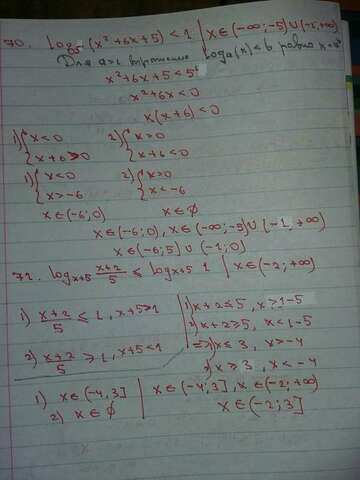 70. log₅ (x²+6x+5) < 1 | x∈(-∞;-5)∪(-1;+∞)
Для a>1 выражение loga(x)<b равно x<aᵇ
x²+6x+5<5¹
x²+6x<0
x(x+6)<0
1) {x<0 2) {x>0
{x+6>0 {x+6<0
1) {x<0 2) {x>0
{x>-6 {x<-6
x∈(-6;0) x∈∅
x∈(-6;0), x∈(-∞;-5)∪(-1;+∞)
x∈(-6;5)∪(-1;0)
71. logₓ₊₅ x+2/5 ≤ logₓ₊₅ 1 | x∈(-2;+∞)
1) x+2/5 ≤ 1, x+5>1 | 1) x+2≤5, x>1-5
2) x+2≥5, x<1-5
2) x+2/5 ≥ 1, x+5<1 =>1) x≤3, x>-4
2) x≥3, x<-4
1) x∈(-4,3] | x∈(-4;3], x∈(-2;+∞)
2) x∈∅ x∈(-2;3]